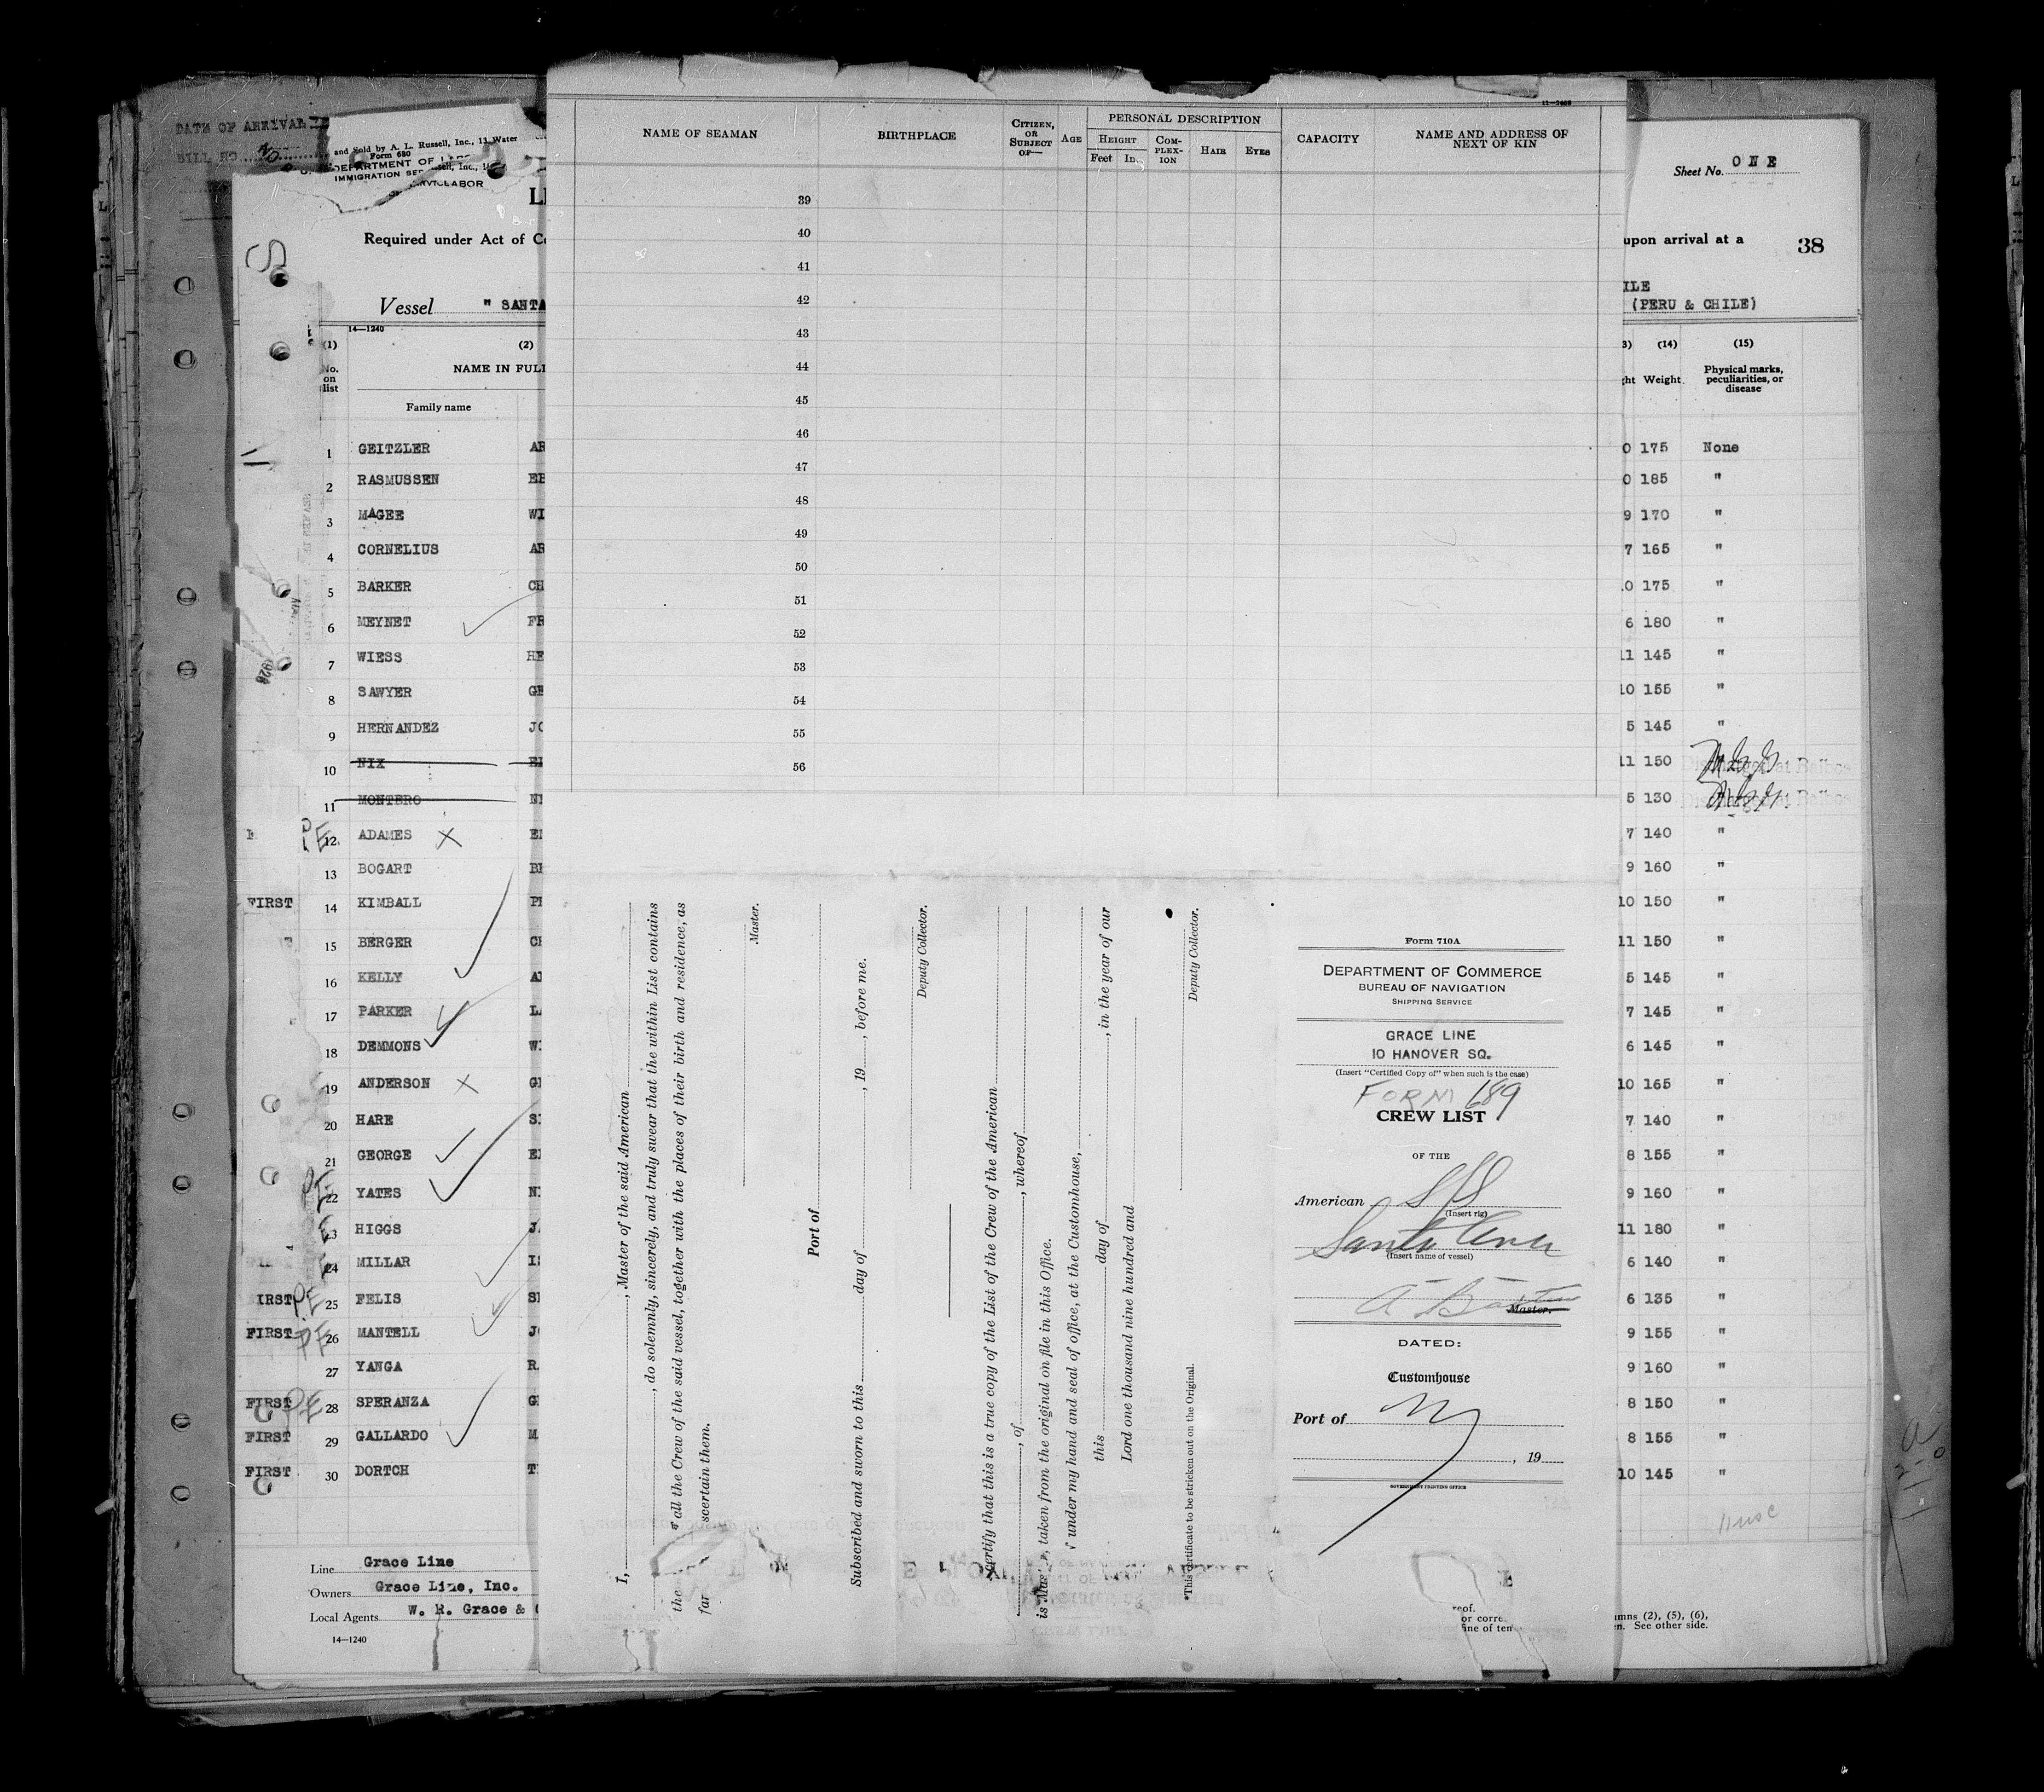 DATE OF ARRIVAL
BILL NO.
and Sold by A. L. Russell, Inc., 13 Water
Form 680
DEPARTMENT OF
IMMIGRATION SER
LABOR
Required under Act of
Vessel " SANTA
14—1240
(1) (2)
No. on list
NAME IN FULL
Family name
1 GEITZLER
2 RASMUSSEN
3 MAGEE
4 CORNELIUS
5 BARKER
6 MEYNET
7 WIESS
8 SAWYER
9 HERNANDEZ
10 NIX
11 MONTERO
PE 12 ADAMES X
13 BOGART
FIRST 14 KIMBALL
15 BERGER
16 KELLY
17 PARKER
18 DEMMONS
19 ANDERSON X
20 HARE
21 GEORGE
PE 22 YATES
23 HIGGS
24 MILLAR
PE 25 FELIS
FIRST PE 26 MANTELL
27 YANGA
FIRST PE 28 SPERANZA
FIRST 29 GALLARDO
FIRST 30 DORTCH
Line Grace Line
Owners Grace Line, Inc.
Local Agents W. R. Grace &
14—1240
11—1408
NAME OF SEAMAN
BIRTHPLACE
CITIZEN, OR SUBJECT OF—
AGE
PERSONAL DESCRIPTION
HEIGHT
Feet In.
COMPLEX-
ION
HAIR
EYES
CAPACITY
NAME AND ADDRESS OF NEXT OF KIN
39
40
41
42
43
44
45
46
47
48
49
50
51
52
53
54
55
56
I, , Master of the said American
, do solemnly, sincerely, and truly swear that the within List contains
the all the Crew of the said vessel, together with the places of their birth and residence, as
far scertain them.
Master.
Port of
Subscribed and sworn to this day of , 19 , before me.
Deputy Collector.
certify that this is a true copy of the List of the Crew of the American
, of , whereof
is Master, taken from the original on file in this Office.
under my hand and seal of office, at the Customhouse,
this day of , in the year of our
Lord one thousand nine hundred and
Deputy Collector.
*This certificate to be stricken out on the Original.
Form 710A
DEPARTMENT OF COMMERCE
BUREAU OF NAVIGATION
SHIPPING SERVICE
GRACE LINE
10 HANOVER SQ.
(Insert "Certified Copy of" when such is the case)
FORM 689
CREW LIST
OF THE
American SS
(Insert rig)
Santa Ana
(Insert name of vessel)
Master.
DATED:
Customhouse
Port of NY
, 19
GOVERNMENT PRINTING OFFICE
Sheet No. ONE
upon arrival at a 38
ILE
(PERU & CHILE)
(14) (15)
Weight
Physical marks, peculiarities, or disease
0 175 None
0 185 "
9 170 "
7 165 "
0 175 "
6 180 "
11 145 "
10 155 "
5 145 "
11 150 Discharged at Balboa
5 130 Discharged at Balboa
7 140 "
9 160 "
10 150 "
11 150 "
5 145 "
7 145 "
6 145 "
10 165 "
7 140 "
8 155 "
9 160 "
11 180 "
6 140 "
6 135 "
9 155 "
9 160 "
8 150 "
8 155 "
10 145 "
reof.
or corre
fine of ten
mns (2), (5), (6),
en. See other side.